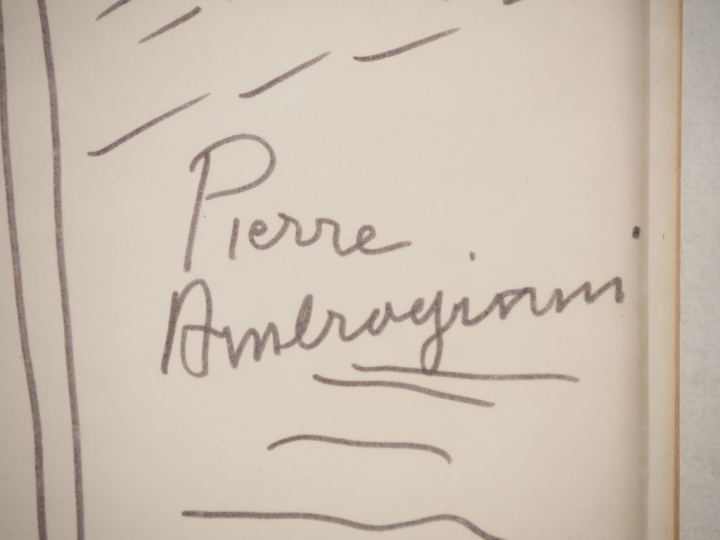 Pierre
Ambrogiani